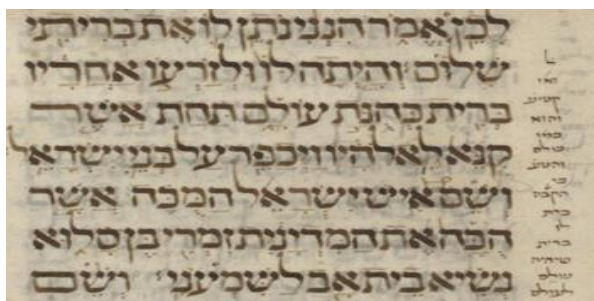 לכן אמר הנני נתן לו את בריתי
שלום והיתה לו ולזרעו אחריו
ברית כהנת עולם תחת אשר
קנא לאלהיו ויכפר על בני ישראל
ושם איש ישראל המכה אשר
הכה את המדינית זמרי בן סלוא
נשיא בית אב לשמעני ושם